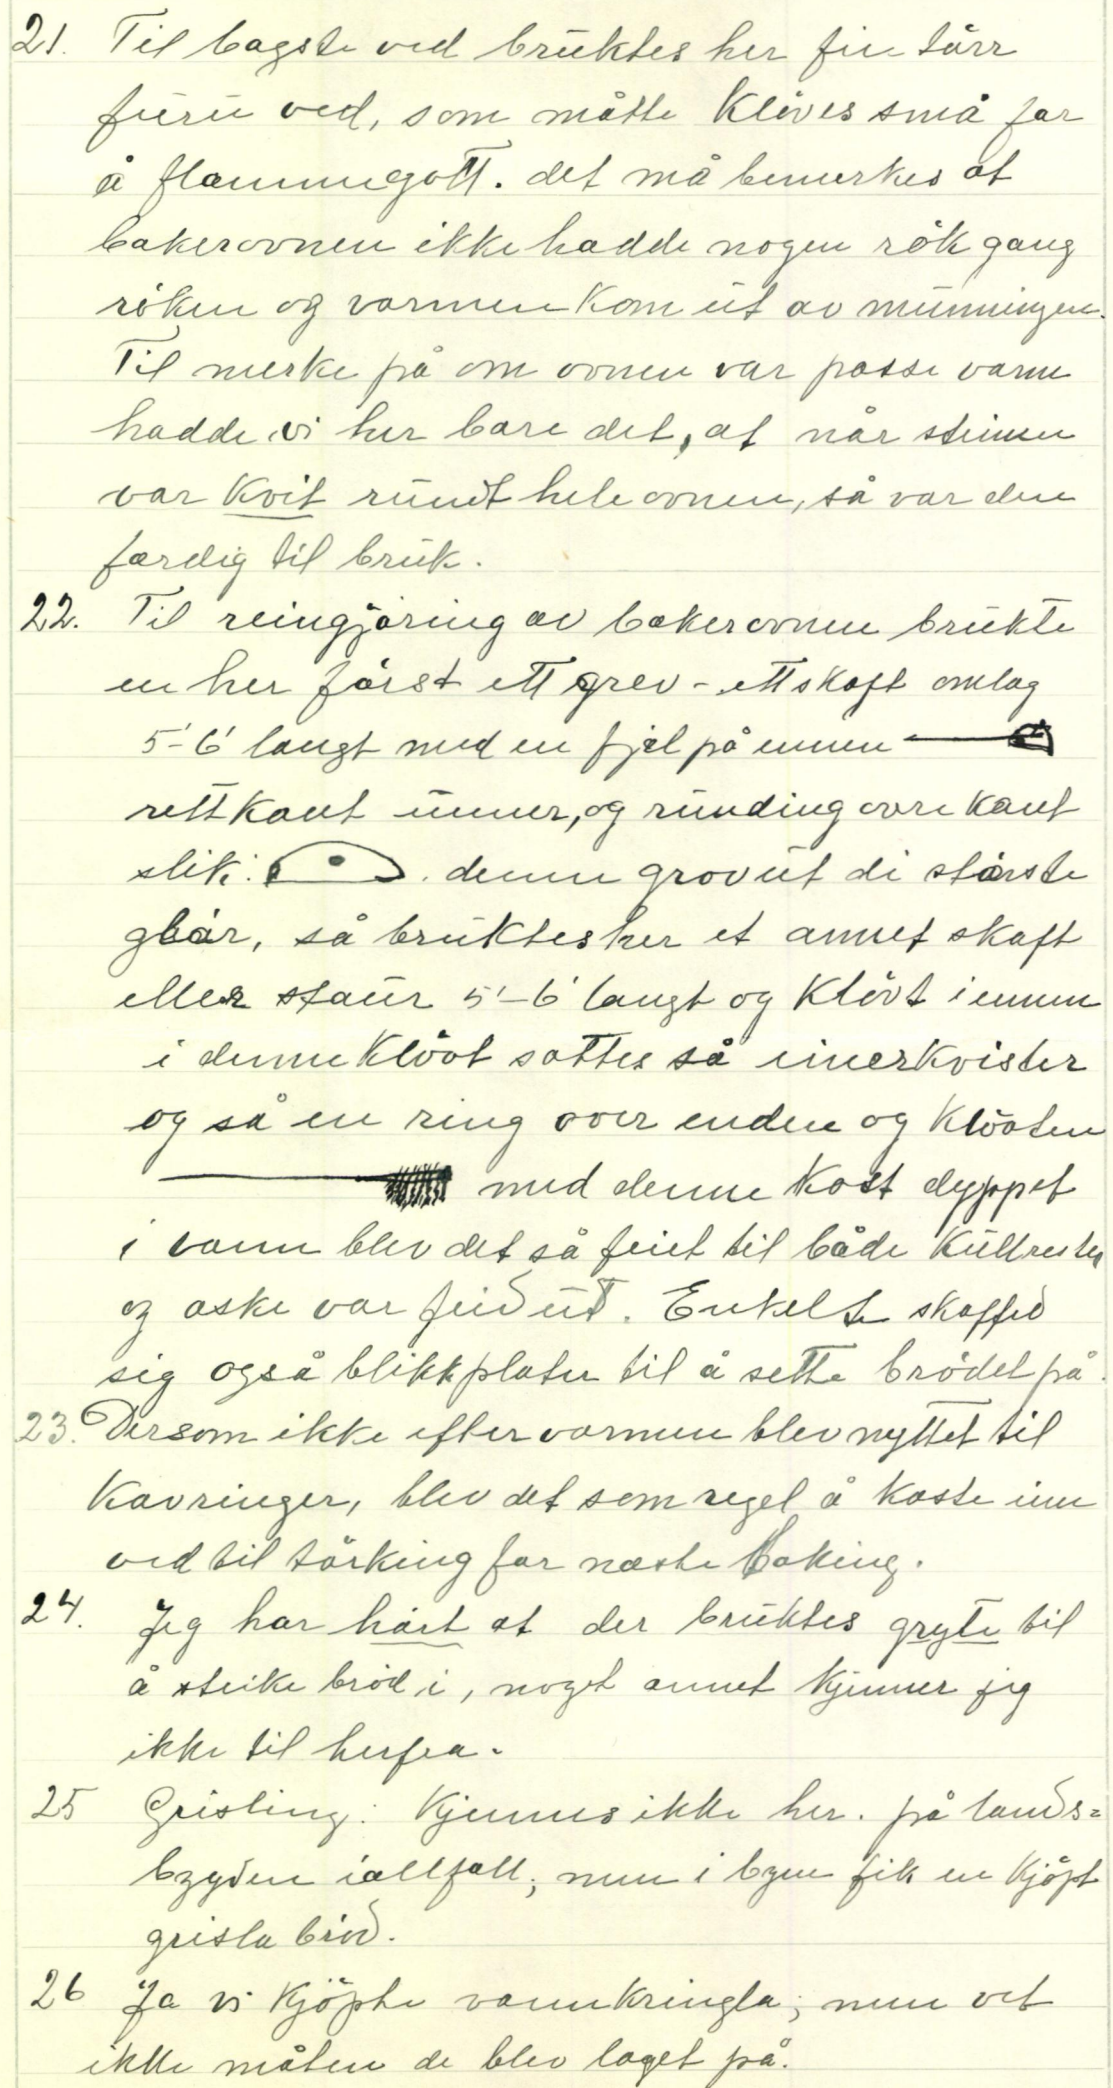 21. Til bagste ved brüktes her fin törr
füru ved, som måtte klöves små for
å flammegott. det må bemerkes at
bakerovnen ikke hadde nogen rök gang
röken og varmen kom üt av münningen.
Til merke på om ovnen var passe varm
hadde vi her bare det, at når steinen
var kvitründt hele ovnen, så var den
færdig til brük.
22. Til reingjöring av bakerovnen brükte
en her först ett grev - ett skaft omlag
5'-6' langt med en fjøl på ennen
rettkant ünner, og ründing övre kant
slik: denne grov üt di störste
glör, så brüktes her et annet skaft
eller staür 5'-6' langt og klövt i ennen
i denne klövt sattes så einerkvister
og så en ring over enden og klövten
med denne kost dyppet
i vann blev det så feiet til både küllrester
og aske var feid üt. Enkelte skaffed
sig også blikkplater til å sette brödet på.
23. Dersom ikke eftervarmen blev nyttet til
kavringer, blev det som regel å kaste inn
ved til törking for næste baking.
24. Jeg har hört at der brüktes gryte til
å steike bröd i, noget annet kjenner jeg
ikke til herfra.
25 Grisling: kjennes ikke her. på lands=
bzyden iallfall; men i byen fik en kjöpt
grisla bröd.
26 Ja vi kjöpte vannkringla; men vet
ikke måten de blev laget på.